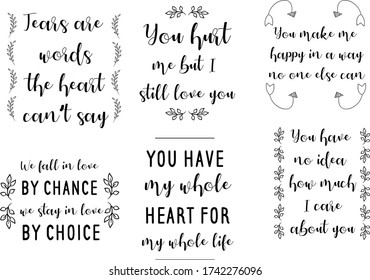 Tears are
words
the heart
can't say
You hurt
me but I
still love you
You make me
happy in a way
no one else can
We fall in love
BY CHANCE
we stay in love
BY CHOICE
YOU HAVE
my whole
HEART FOR
my whole life
You have
no idea
how much
I care
about you
shutterstock.com · 1742276096